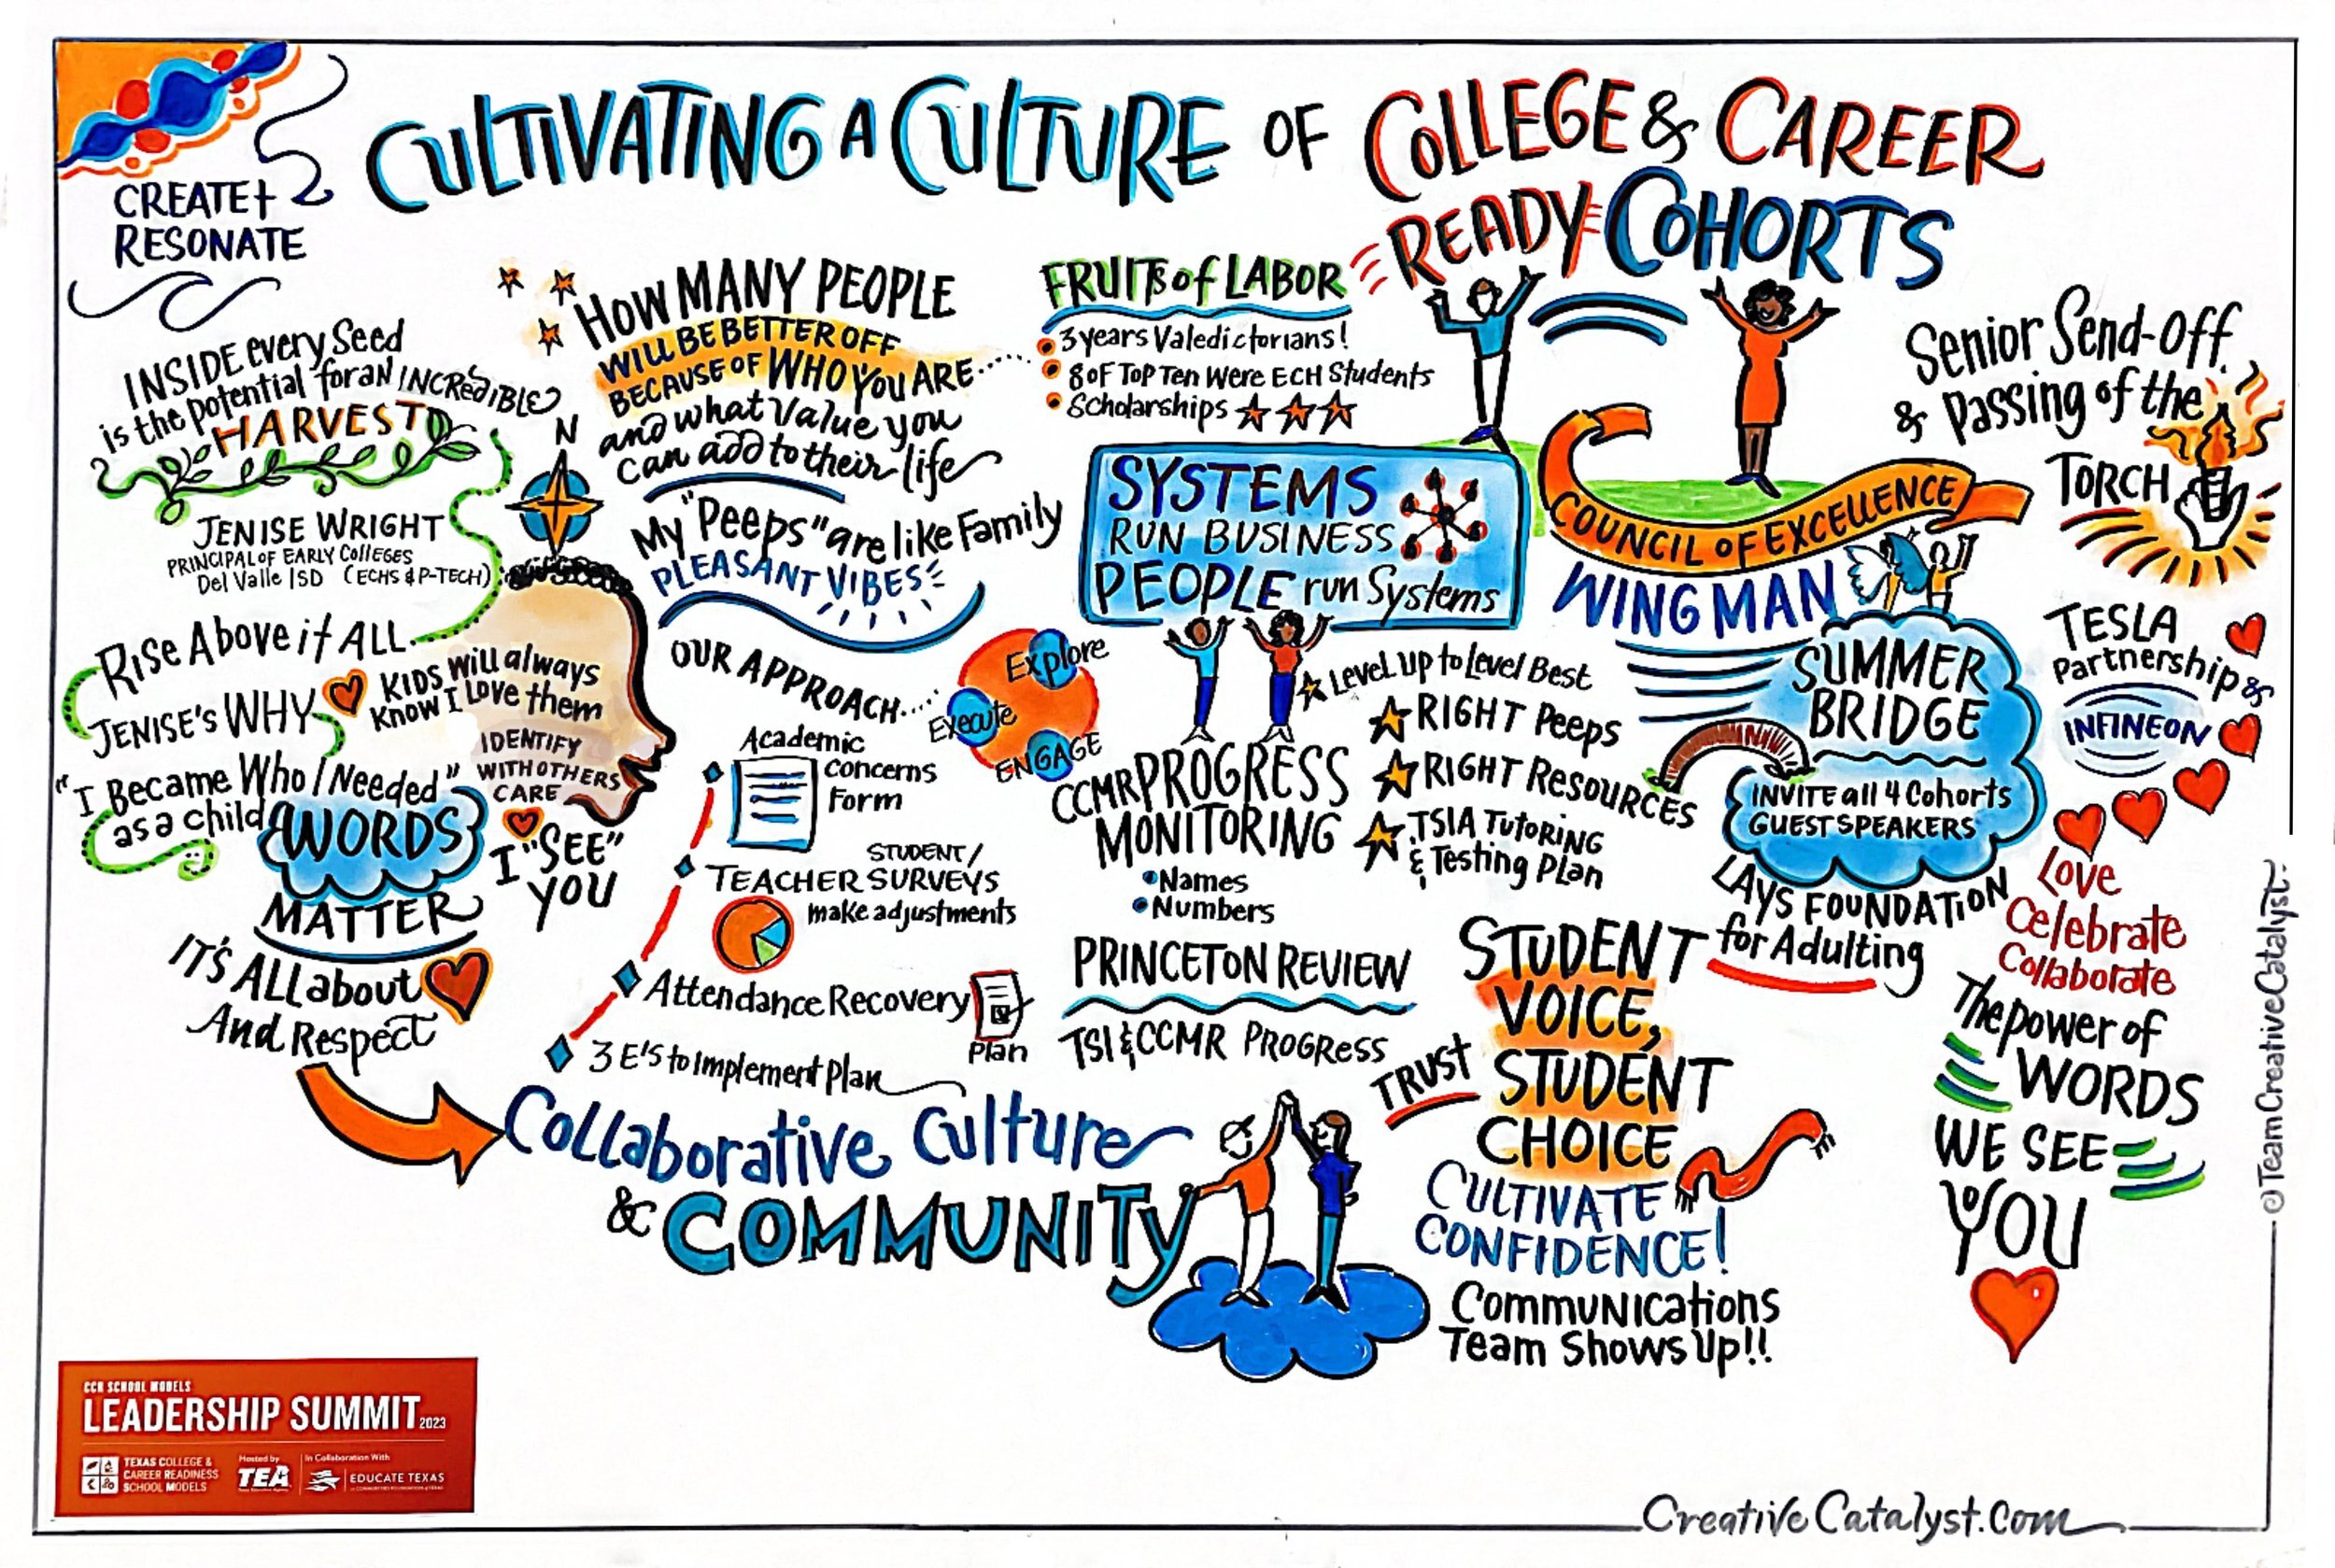 CREATE +
RESONATE
CULTIVATING A CULTURE OF COLLEGE & CAREER
READY COHORTS
INSIDE every Seed
is the potential for aN INCREDIBLE
HARVEST
JENISE WRIGHT
PRINCIPAL OF EARLY COLLEGES
Del Valle ISD (ECHS & P-TECH)
RISE ABOVE iT ALL
JENISE'S WHY
KIDS will always
KNOW I LOVE them
"I Became Who I Needed"
as a child
IDENTIFY
WITH OTHERS
CARE
I "SEE"
YOU
WORDS
MATTER
IT'S ALL about
And Respect
N
HOW MANY PEOPLE
WILL BE BETTER OFF
BECAUSE OF WHO YOU ARE
and what Value you
can add to their life
My "Peeps" are like Family
PLEASANT VIBES
OUR APPROACH....
Explore
Execute
ENGAGE
Academic
Concerns
Form
STUDENT/
TEACHER SURVEYS
make adjustments
Attendance Recovery
Plan
3 E'S to Implement Plan
Collaborative Culture
& COMMUNITY
FRUITS of LABOR
3 years Valedictorians!
8 OF Top Ten Were ECH Students
Scholarships
SYSTEMS
RUN BUSINESS
PEOPLE run Systems
LEVEL UP to Level Best
RIGHT Peeps
RIGHT RESOURCES
TSIA TUTORING
& Testing Plan
CCMR PROGRESS
MONITORING
Names
Numbers
PRINCETON REVIEW
TSI & CCMR PROGRESS
COUNCIL OF EXCELLENCE
WING MAN
SUMMER
BRIDGE
INVITE all 4 Cohorts
GUEST SPEAKERS
LAYS FOUNDATION
for Adulting
TRUST
STUDENT
VOICE,
STUDENT
CHOICE
CULTIVATE
CONFIDENCE!
Communications
Team Shows Up!!
Senior Send-Off
& Passing of the
TORCH
TESLA
Partnership &
INFINEON
Love
Celebrate
Collaborate
The power of
WORDS
WE SEE
YOU
©TeamCreativeCatalyst.
CCR SCHOOL MODELS
LEADERSHIP SUMMIT 2023
TEXAS COLLEGE &
CAREER READINESS
SCHOOL MODELS
Hosted by
TEA
In Collaboration With
EDUCATE TEXAS
CreativeCatalyst.Com